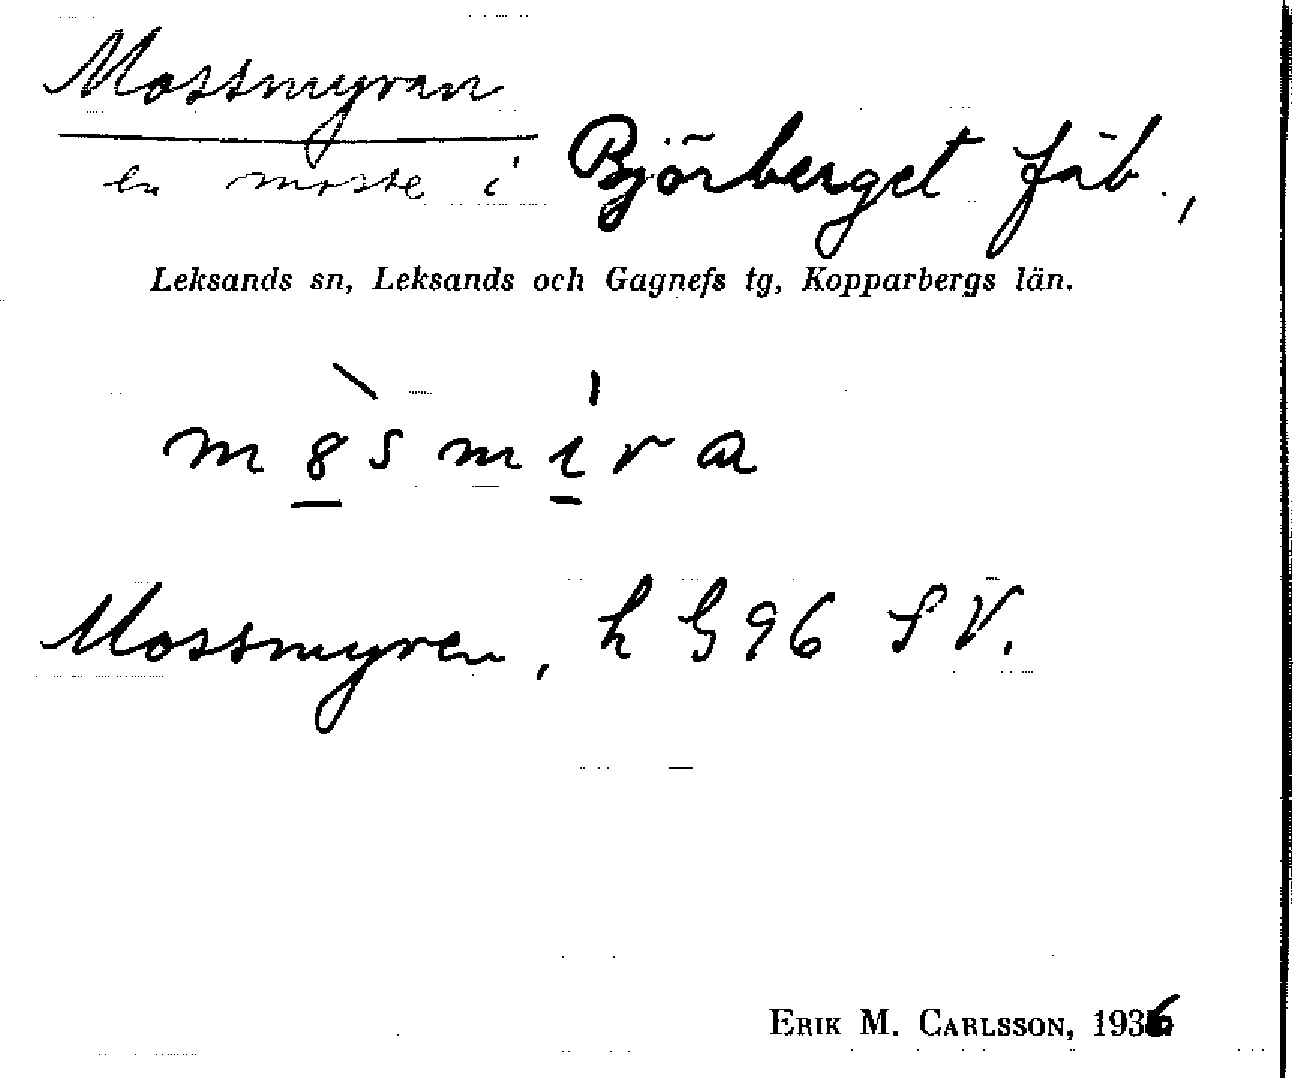 Mossmyran
en mosse i Björberget fäb.,
Leksands sn, Leksands och Gagnefs tg, Kopparbergs län.
m8smira
Mossmyren, h G96 SV.
ERIK M. CARLSSON, 1936